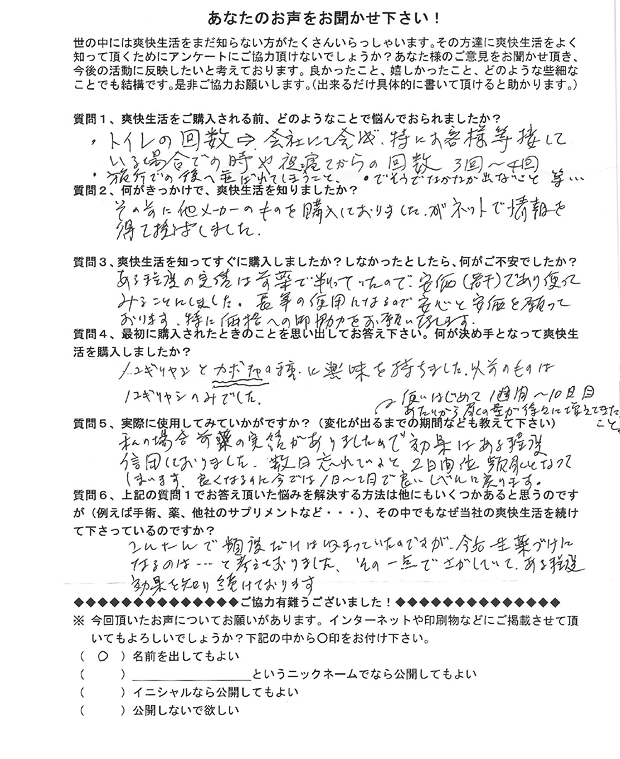 あなたのお声をお聞かせ下さい！
世の中には爽快生活をまだ知らない方がたくさんいらっしゃいます。その方達に爽快生活をよく
知って頂くためにアンケートにご協力頂けないでしょうか？あなた様のご意見をお聞かせ頂き、
今後の活動に反映したいと考えております。良かったこと、嬉しかったこと、どのような些細な
ことでも結構です。是非ご協力お願いします。（出来るだけ具体的に書いて頂けると助かります。）
質問１、爽快生活をご購入される前、どのようなことで悩んでおられましたか？
・トイレの回数⇨会社にて会議、特にお客様等接して
いる場合での時や夜寝てからの回数 3回〜4回
・旅行での
・でそうでなかなか出ないこと 等…
質問２、何がきっかけで、爽快生活を知りましたか？
その前に他メーカーのものを購入しておりましたがネットで情報を
得て しました.
質問３、爽快生活を知ってすぐに購入しましたか？しなかったとしたら、何がご不安でしたか？
ある程度の実績は 判っていたので、安価（若干）であり使って
みることにしました。長年の使用になるので安心と安価を願って
おります、特に価格への御協力をお願い致します.
質問４、最初に購入されたときのことを思い出してお答え下さい。何が決め手となって爽快生
活を購入しましたか？
ノコギリヤシとカボチャの種に興味を持ちました.以前のものは
ノコギリヤシのみでした.
使いはじめて1週間〜10日目
あたりから尿の量が徐々に変えてきた
こと。
質問５、実際に使用してみていかがですか？（変化が出るまでの期間なども教えて下さい）
私の場合 の実績がありましたので効果はある程度
信用しておりました. 数日忘れていると、2日間位 となって
しまいます、良くなるのに今では1日〜2日で良い に戻ります。
質問６、上記の質問１でお答え頂いた悩みを解決する方法は他にもいくつかあると思うのです
が（例えば手術、薬、他社のサプリメントなど・・・）、その中でもなぜ当社の爽快生活を続け
て下さっているのですか？
だけは ていたのですが、今后一生薬づけに
なるのは…と考えておりました、その一点でさがしていて、ある程度
効果を知り続けております
◆◆◆◆◆◆◆◆◆◆◆◆◆ご協力有難うございました！◆◆◆◆◆◆◆◆◆◆◆◆◆
※ 今回頂いたお声についてお願いがあります。インターネットや印刷物などにご掲載させて頂
いてもよろしいでしょうか？下記の中から〇印をお付け下さい。
（ 〇 ）名前を出してもよい
（ ）______________というニックネームでなら公開してもよい
（ ）イニシャルなら公開してもよい
（ ）公開しないで欲しい